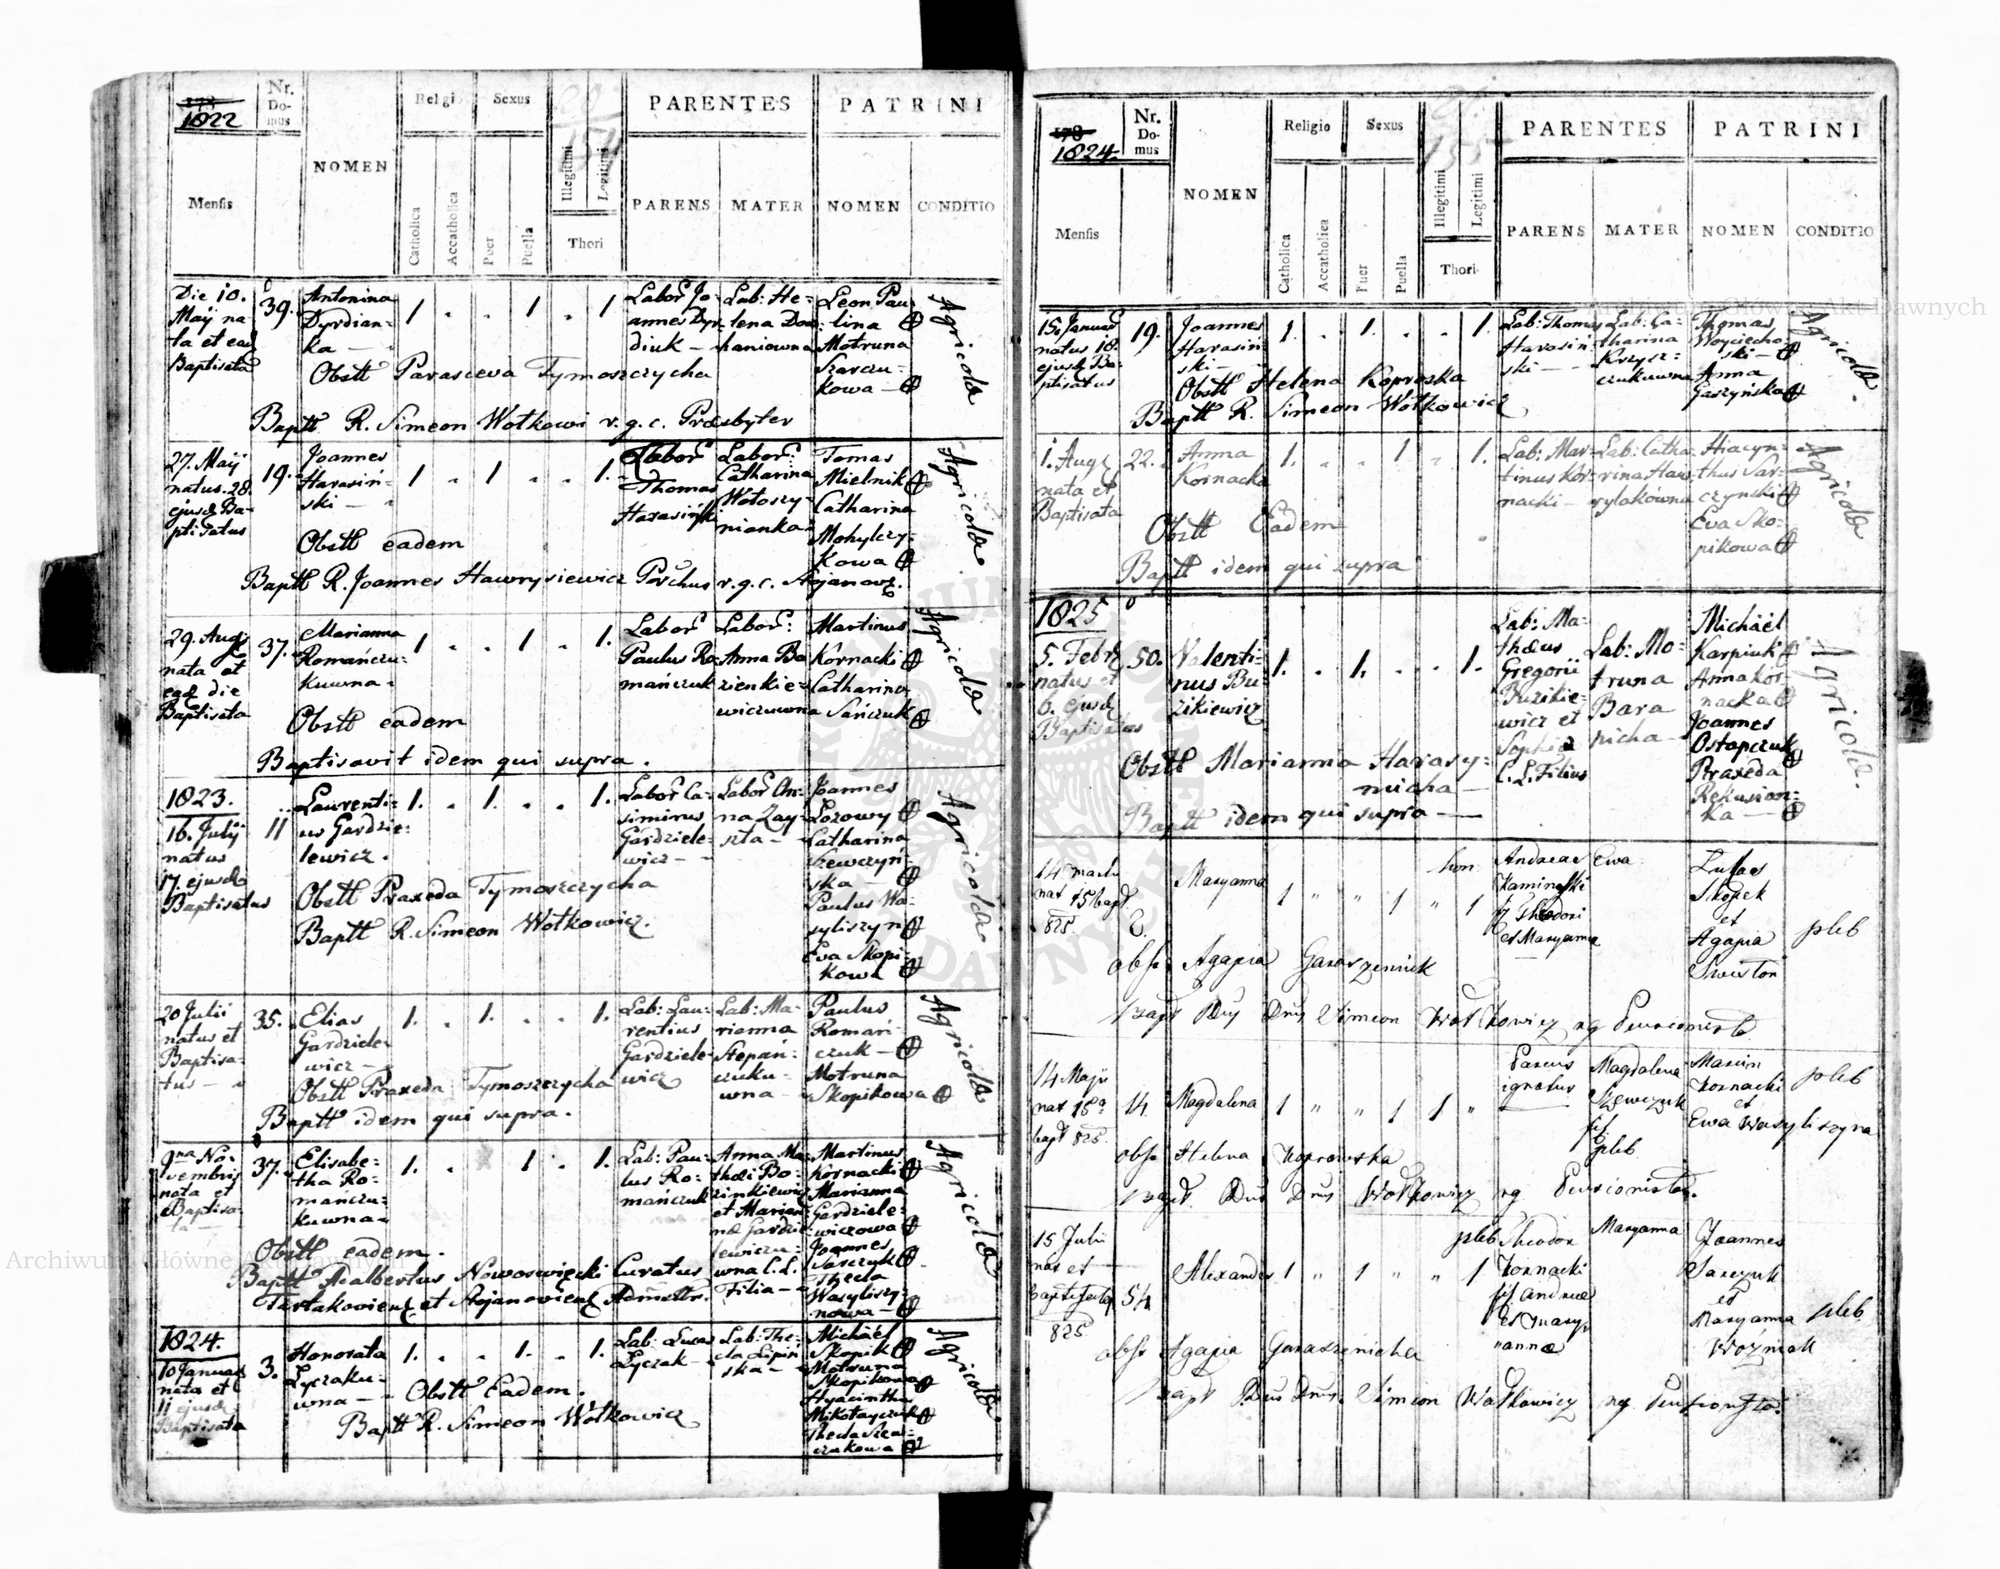 1822
Nr.
Do-
mus
Religio
Sexus
PARENTES
PATRINI
NOMEN
Mensis
Catholica
Accatholica
Puer
Puella
Illegitimi
Legitimi
Thori
PARENS
MATER
NOMEN
CONDITIO
Die 10.
Maij na-
ta et ead
Baptisata
39.
Antonina
Dyrdian-
ka
1 . . 1 . 1
Labor Jo-
annes Dyr-
diuk
Lab: He-
lena Dom-
haniowna
Leon Pau-
lina
Motruna
Szarczu-
kowa
Agricolæ
Obstt Parasceva Tymoszczycha
Baptt R. Simeon Wołkowi r. g. c. Præsbyter
27. Maij
natus. 28.
ejusd Ba-
ptisatus
19.
Joannes
Harasiń-
ski
1 . 1 . . 1.
Labor
Thomas
Harasiński
Labor:
Catharina
Wołoszy-
nianka
Tomas
Mielnik
Catharina
Mohylczy-
kowa
Agricolæ
Obstt eadem
Baptt R. Joannes Hawrysiewicz Parchus r. g. c. Stojanov.
29. Aug
nata et
ead die
Baptisata
37.
Marianna
Romańczu-
kuwna
1 . . 1 . 1.
Labor
Paulus Ro-
mańczuk
Labor:
Anna Bo-
zienkie-
wiczuwna
Martinus
Kornacki
Catharina
Sańczuk
Agricolæ
Obstt eadem
Baptisavit idem qui supra.
1823.
16. Julij
natus
17. ejusd
Baptisatus
11
Laurenti-
us Gardzie-
lewicz.
1. . 1. . . 1.
Labor Ca-
simirus
Gardziele-
wicz
Labor An-
na Zay-
szta
Joannes
Łozowy
Catharina
Szewczyn-
ska
Paulus Wa-
syliszyn
Eva Skopi-
kowa
Agricolæ.
Obstt Praxeda Tymoszczycha
Baptt R. Simeon Wołkowicz.
20 Julii
natus et
Baptisa-
tus
35.
Elias
Gardziele-
wicz
1. . 1. . . 1.
Lab: Lau-
rentius
Gardziele-
wicz
Lab: Ma-
rianna
Stepań-
czuku-
wna
Paulus
Romań-
czuk
Motruna
Skopikowa
Agricolæ
Obstt Praxeda Tymoszczycha
Baptt idem qui supra.
9na No-
vembris
nata et
Baptisa-
ta
37.
Elisabe-
tha Ro-
mańczu-
kuwna
1. . . 1 . 1.
Lab: Pau-
lus Ro-
mańczuk
Anna Ma-
thæi Bo-
zinkiewicz
et Marian-
næ Gardzie-
lewiczu-
wna C. L.
Filia
Martinus
Kornacki
Marianna
Gardziele-
wiczowa
Joannes
Sarczyk
Thecla
Wasyliszy-
nowa
Agricolæ
Obstt eadem.
Baptt Adalbertus Nowoswięcki Curatus
Tartakovien et Stojanovien Admstr.
1824.
10 Januar
nata et
11 ejusd
Baptisata
3.
Honorata
Łyczaku-
wna
1. . . 1. . 1.
Lab: Lucas
Łyczak
Lab: The-
cla Lipiń-
ska
Michael
Skopik
Motruna
Skopikowa
Hyacinthus
Mikołayczuk
Thecla Szew-
czukowa
Agricolæ
Obstt Eadem.
Baptt R. Simeon Wołkowicz
1824.
Nr.
Do-
mus
Religio
Sexus
PARENTES
PATRINI
NOMEN
Mensis
Catholica
Accatholica
Puer
Puella
Illegitimi
Legitimi
Thori
PARENS
MATER
NOMEN
CONDITIO
15. Januar
natus 18.
ejusd Ba-
ptisatus
19.
Joannes
Harasiń-
ski
1. . 1. . . 1.
Lab: Thomas
Harasiń-
ski
Lab: Ca-
tharina
Krzysz-
czukuwna
Thomas
Woyciecho-
ski
Anna
Gaszyńska
Agricolæ.
Obstt Helena Koproska
Baptt R. Simeon Wołkowicz
1. Aug
nata et
Baptisata
22.
Anna
Kornacka
1. . . 1 . 1.
Lab: Mar-
tinus Kor-
nacki
Lab: Catha-
rina Haw-
rylakówna
Hiacyn-
thus Sar-
czynski
Eva Sko-
pikowa
Agricolæ
Obstt Eadem
Baptt idem qui supra
1825
5. Febr
natus et
6. ejusd
Baptisatus
50.
Valenti-
nus Bu-
zikiewicz
1. . 1. . . 1.
Lab: Ma-
thæus
Gregorii
Buzikie-
wicz et
Sophiæ
C. L. Filius
Lab: Mo-
truna
Bara
nicha
Michael
Karpiuk
Anna Kor-
nacka
Joannes
Ostapczuk
Praxeda
Rekusion-
ka
Agricolæ.
Obstt Marianna Harasy-
micha
Baptt idem qui supra
14 martii
nat 15 bapt
825
Maryanna
1 " " 1 " 1
hon
Andreas
Kaminski
f Theodori
et Maryanna
Ewa
Lukas
Skopek
et
Agapia
Swiston
pleb
obst Agapia Garaszennik
bapt Dus Drus Simeon Wołkowicz rg Pensionista
14 Maji
nat 18a
bapt 825.
14
Magdalena
1 " " 1 1 "
Parens
ignotus
Magdalena
Szewczyk
pleb
Marcin
Kornacki
et
Ewa Wasyliszyna
pleb
obst Helena Koprowska
bapt Dus Drus Wołkowicz rg Pensionista.
15 Julii
nat et
825
54
Alexander
1 " 1 " " 1
pleb Theodor
Kornacki
fil Andreæ
et Mary-
annæ
Maryanna
Joannes
Sarczuk
et
Maryanna
Woźniak
pleb
obst Agapia Garaszenicha
bapt Dus Drus Simeon Wołkowicz rg Pensionista.
Archiwum Główne Akt Dawnych
Archiwum Główne Akt Dawnych
ARCHIWUM GŁÓWNE AKT DAWNYCH